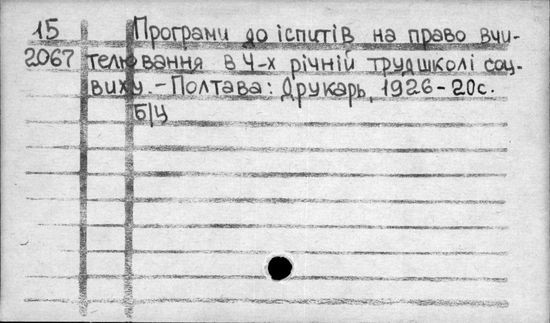 15 Програми до іспитів на право вчи-
2067 телювання в 4-х річній трудшколі соц-
виху. - Полтава: Друкарь, 1926 - 20с.
Б/ц